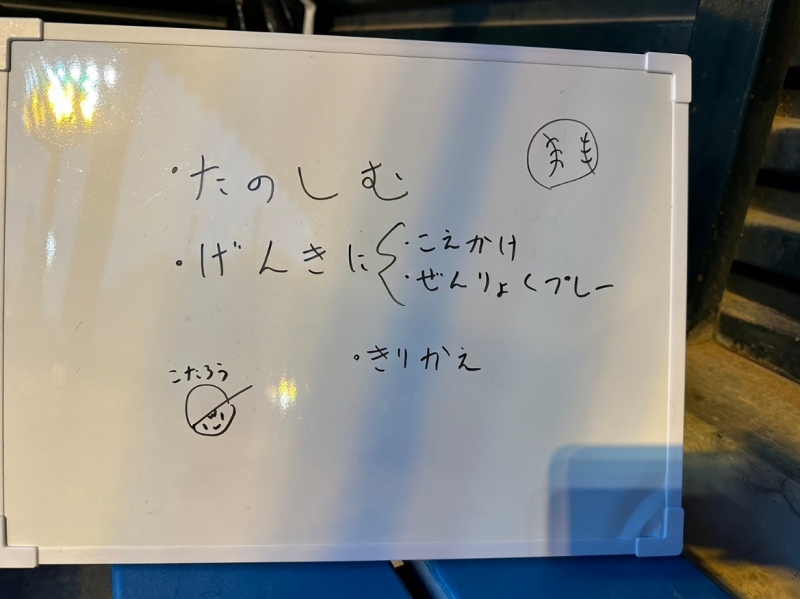 ・たのしむ
・げんきに
・こえかけ
・ぜんりょくプレー
・きりかえ
こたろう